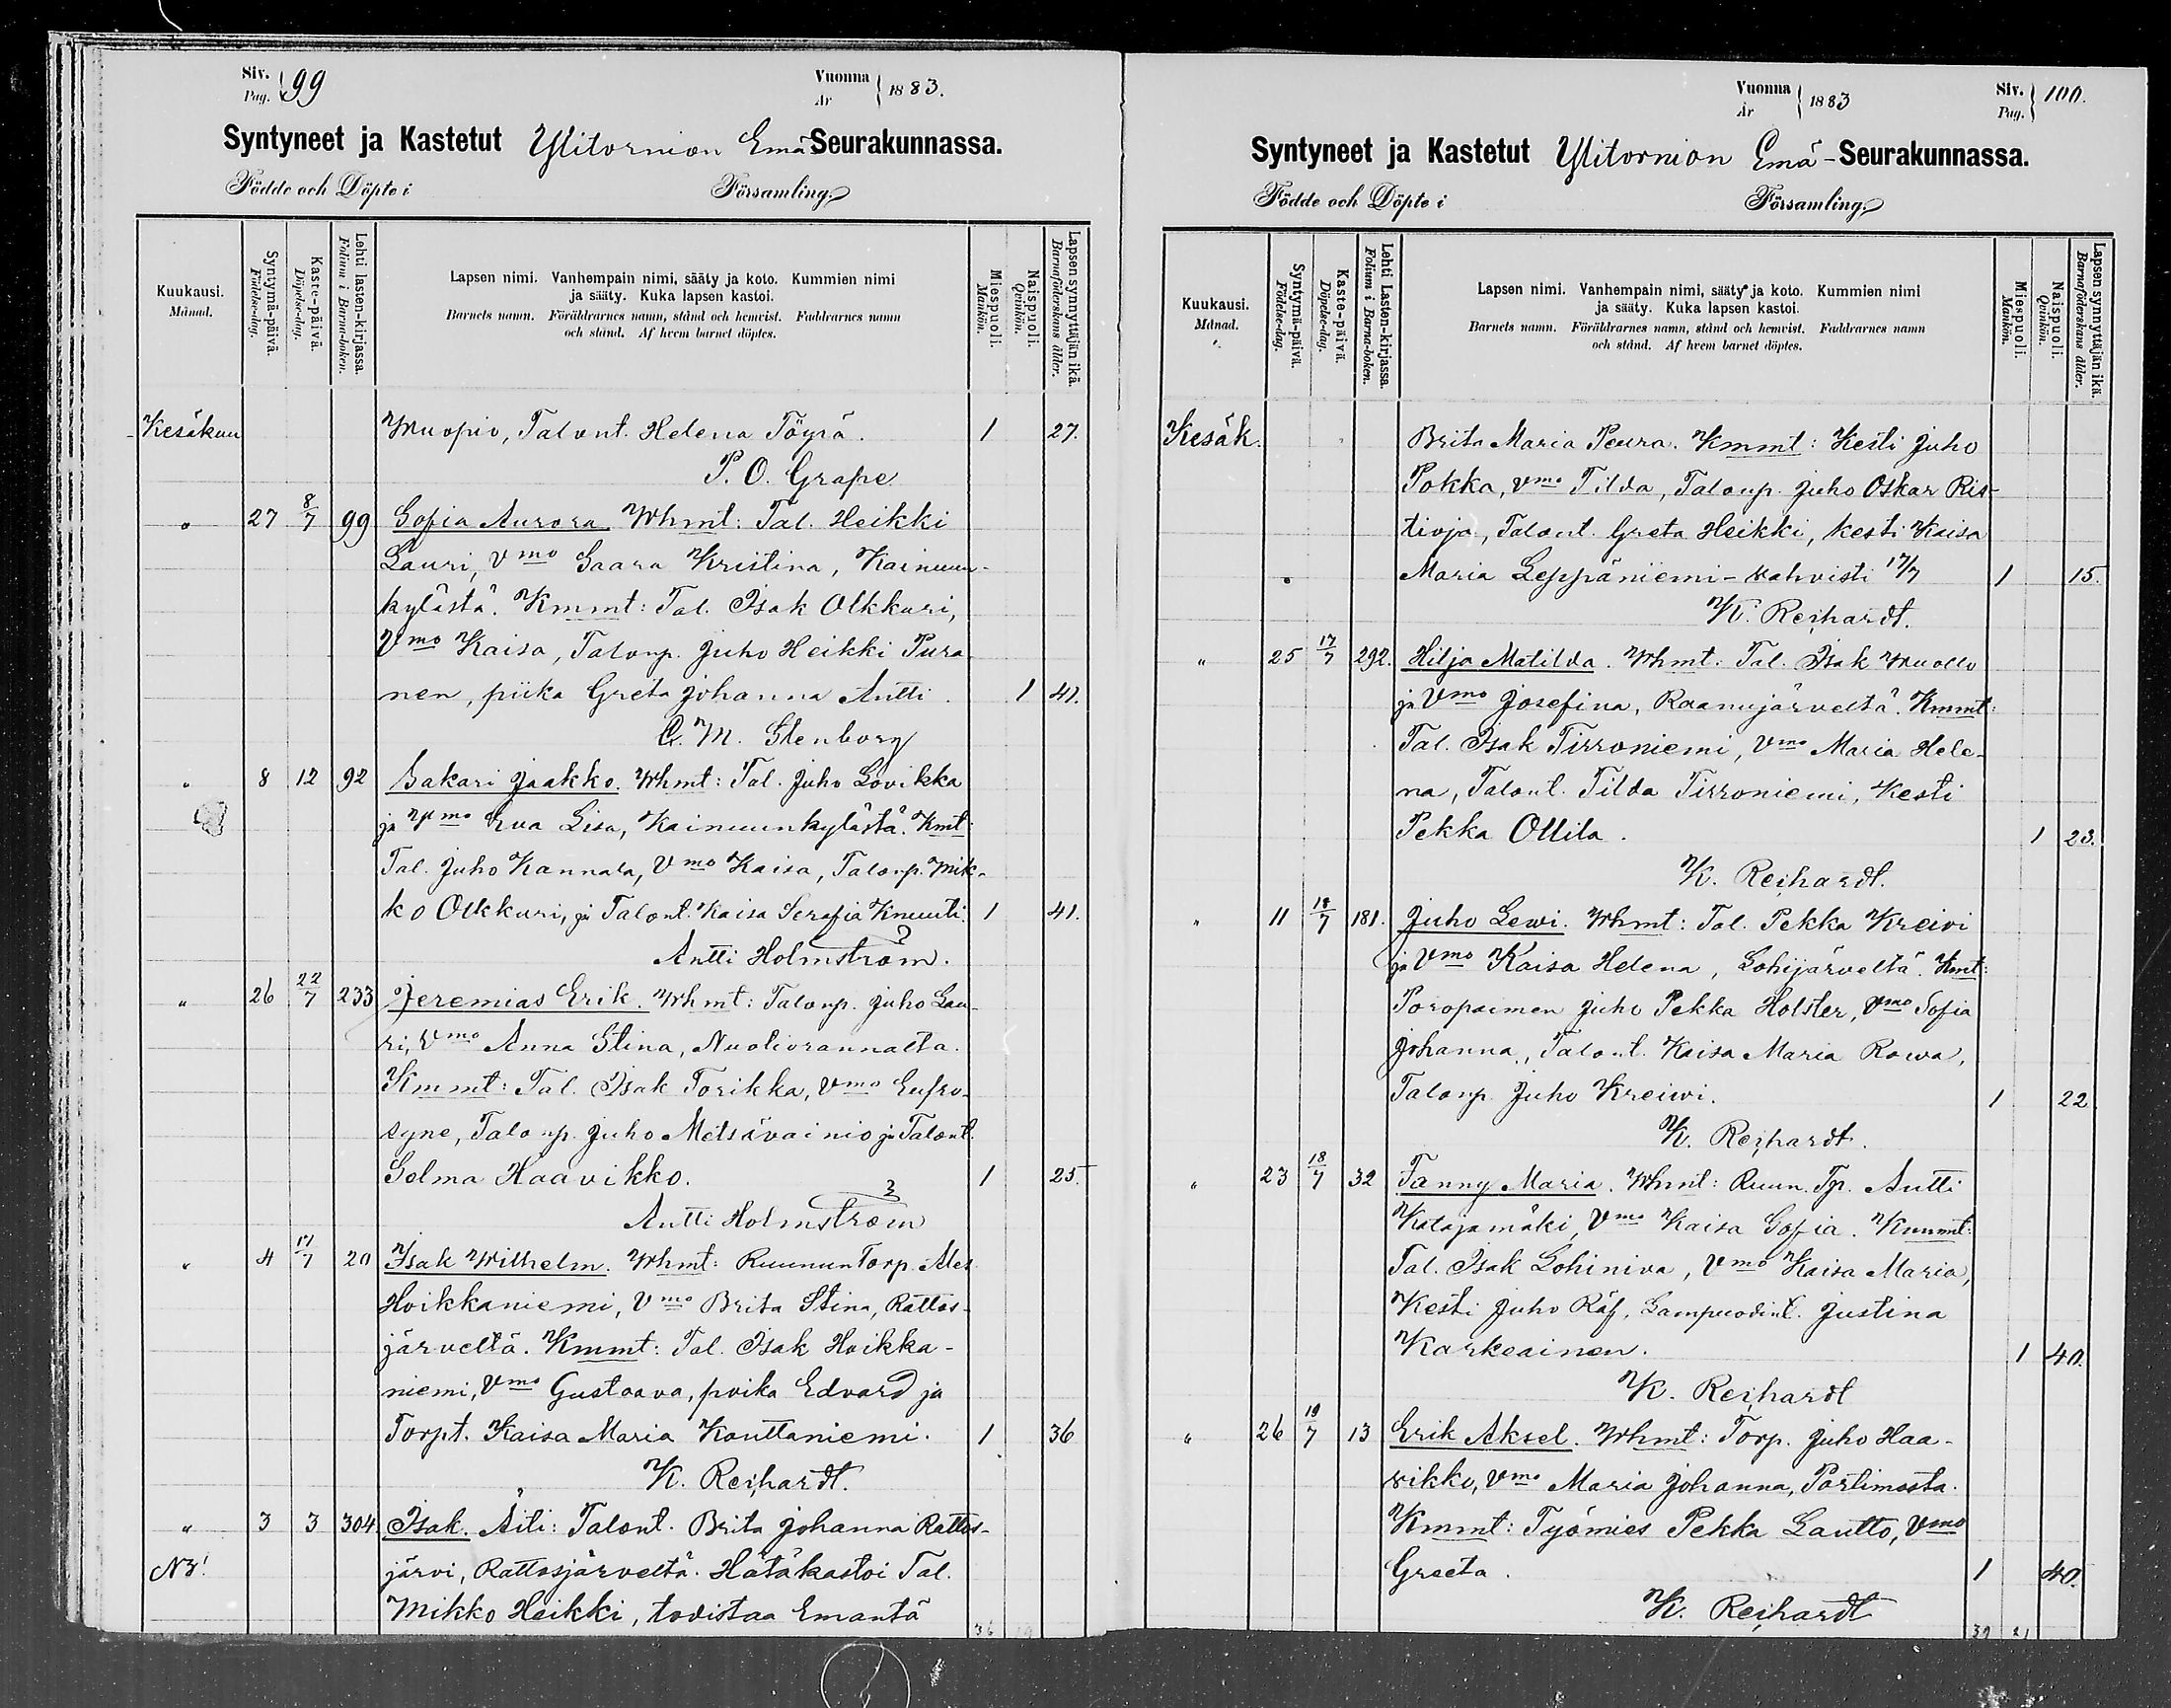 Siv. Pag. 99
Vuonna År 1883.
Syntyneet ja Kastetut Ylitornion Emä Seurakunnassa.
Födde och Döpte i Församling.
Kuukausi. Månad.
Syntymä-päivä. Födelse-dag.
Kaste-päivä. Döpelse-dag.
Lehti lasten-kirjassa. Folium i Barna-boken.
Lapsen nimi. Vanhempain nimi, sääty ja koto. Kummien nimi
ja sääty. Kuka lapsen kastoi.
Barnets namn. Föräldrarnes namn, stånd och hemvist. Faddrarnes namn
och stånd. Af hvem barnet döptes.
Miespuoli. Mankön.
Naispuoli. Qvinkön.
Lapsen synnyttäjän ikä. Barnaföderskans ålder.
Kesäkuu Muopio, Talont. Helena Töyrä. 1 27.
P. O. Grape
" 27 8/7 99 Sofia Aurora Whmt: Tal. Heikki
Lauri, Vmo Saara Kristina, Kainuun-
kylästä. Kmmt: Tal. Isak Olkkuri,
Vmo Kaisa, Talonp. Juho Heikki Pura
nen, piika Greta Johanna Antti. 1 41.
C. M. Stenborg
" 8 12 92 Sakari Jaakko. Whmt: Tal. Juho Lovikka
ja Vmo Eva Lisa, Kainuunkylästä. Kmt
Tal. Juho Kannala, Vmo Kaisa, Talonp. Mik-
ko Olkkuri, ja Talont. Kaisa Serafia Knuuti. 1 41.
Antti Holmström.
" 26 22/7 233 Jeremias Erik. Whmt: Talonp. Juho Lau-
ri, Vmo Anna Stina, Nuoliorannalta.
Kmmt: Tal. Isak Torikka, Vmo Eufro-
syne, Talonp. Juho Metsävainio ja Talont.
Selma Haavikko. 1 25.
Antti Holmström
" 4 17/7 20 Isak Wilhelm. Whmt: Ruunun Torp. Ales
Hoikkaniemi, Vmo Brita Stina, Rattos-
järveltä. Kmmt: Tal. Isak Hoikka-
niemi, Vmo Gustaava, poika Edvard ja
Torpt. Kaisa Maria Kouttaniemi. 1 36
K. Reihardt.
" 3 3 304 Isak. Äiti: Talont. Brita Johanna Rattos-
NB! järvi, Rattosjärveltä. Hätäkastoi Tal.
Mikko Heikki, todistaa Emäntä
36
Vuonna År 1883
Siv. Pag. 100.
Syntyneet ja Kastetut Ylitornion Emä-Seurakunnassa.
Födde och Döpte i Församling.
Kuukausi. Månad.
Syntymä-päivä. Födelse-dag.
Kaste-päivä. Döpelse-dag.
Lehti Lasten-kirjassa. Folium i Barna-boken.
Lapsen nimi. Vanhempain nimi, sääty ja koto. Kummien nimi
ja sääty. Kuka lapsen kastoi.
Barnets namn. Föräldrarnes namn, stånd och hemvist. Faddrarnes namn
och stånd. Af hvem barnet döptes.
Miespuoli. Mankön.
Naispuoli. Qvinkön.
Lapsen synnyttäjän ikä. Barnaföderskans ålder.
Kesäk. Brita Maria Peura. Kmmt: Kesti Juho
Pokka, Vmo Tilda, Talonp. Juho Oskar Ris-
tioja, Talont. Greta Heikki, Kesti Kaisa
Maria Leppäniemi - vahvisti 17/7 1 15.
K. Reihardt.
" 25 17/7 292. Hilja Matilda. Whmt: Tal. Isak Muollo
ja Vmo Josefina, Raanujärveltä. Kmmt:
Tal. Isak Tirroniemi, Vmo Maria Hele-
na, Talont. Tilda Tirroniemi, Kesti
Pekka Ollila. 1 23.
K. Reihardt.
" 11 18/7 181. Juho Lewi. Whmt: Tal. Pekka Kreivi
ja Vmo Kaisa Helena, Lohijärveltä. Kmt:
Poropaimen Juho Pekka Holster, Vmo Sofia
Johanna, Talont. Kaisa Maria Rowa,
Talonp. Juho Kreiwi. 1 22
K. Reihardt.
" 23 18/7 32 Fanny Maria. Whmt: Ruun. Tp. Antti
Katajamäki, Vmo Kaisa Sofia. Kmmt:
Tal. Isak Lohiniva, Vmo Kaisa Maria,
Kesti Juho Räf, Lampuodint. Justina
Karkeainen. 1 40.
K. Reihardt
" 26 19/7 13 Erik Aksel. Whmt: Torp. Juho Haa-
vikko, Vmo Maria Johanna, Portimosta.
Kmmt: Työmies Pekka Lautto, Vmo
Greeta. 1 40.
K. Reihardt